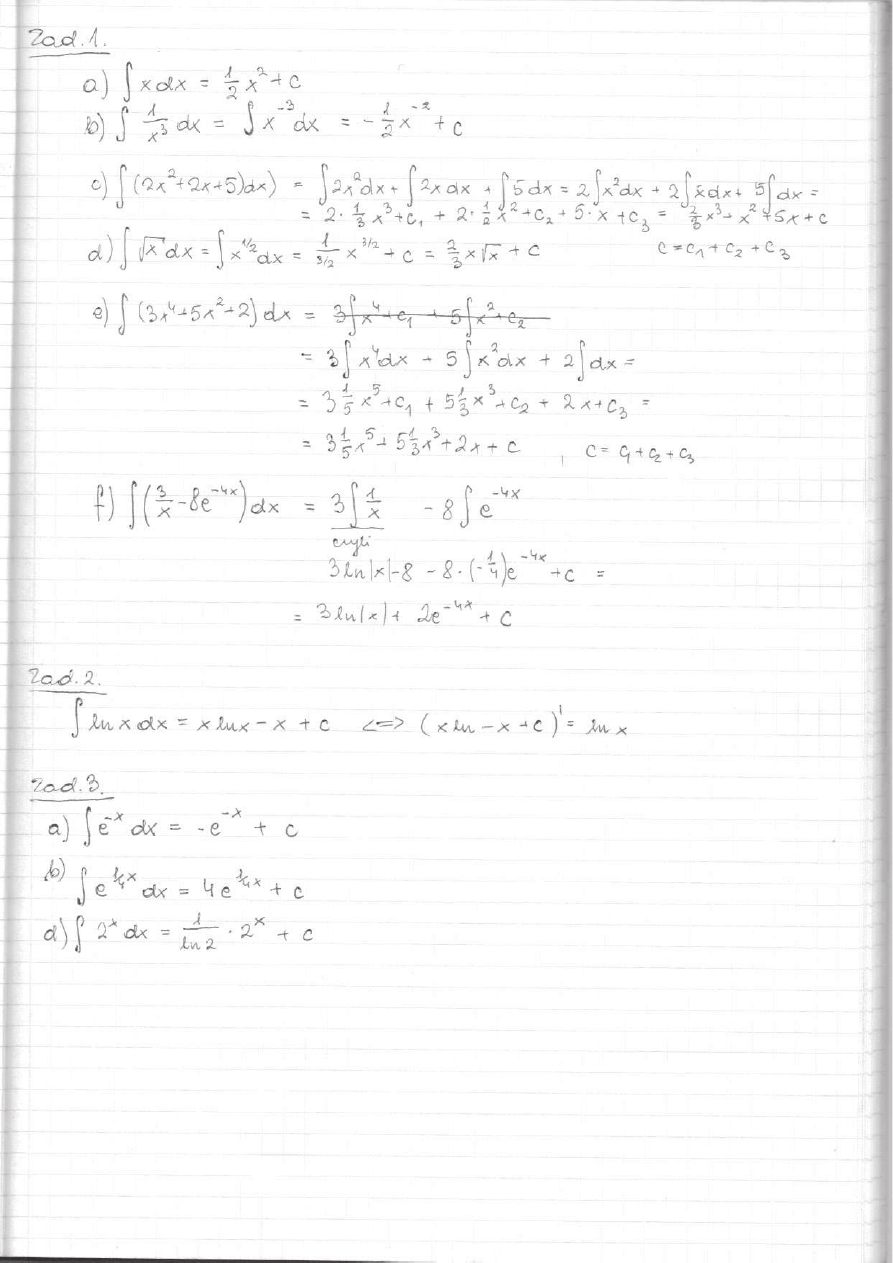 Zad.1.
a) ∫ x dx = 1/2 x² + c
b) ∫ 1/x³ dx = ∫ x⁻³ dx = - 1/2 x⁻² + c
c) ∫ (2x²+2x+5)dx) = ∫ 2x² dx + ∫ 2x dx + ∫ 5 dx = 2 ∫ x² dx + 2 ∫ x dx + 5 ∫ dx =
= 2 · 1/3 x³ + c₁ + 2 · 1/2 x² + c₂ + 5 · x + c₃ = 2/3 x³ + x² + 5x + c
d) ∫ √x dx = ∫ x^(1/2) dx = 1/(3/2) x^(3/2) + c = 2/3 x√x + c
c = c₁ + c₂ + c₃
e) ∫ (3x⁴+5x²+2) dx = 3∫ x⁴ + c₁ + 5∫ x² + c₂
= 3 ∫ x⁴ dx + 5 ∫ x² dx + 2 ∫ dx =
= 3 1/5 x⁵ + c₁ + 5 1/3 x³ + c₂ + 2x + c₃ =
= 3 1/5 x⁵ + 5 1/3 x³ + 2x + c , c = c₁ + c₂ + c₃
f) ∫ (3/x - 8e^(-4x)) dx = 3 ∫ 1/x - 8 ∫ e^(-4x)
czyli
3 ln|x| - 8 - 8 · (-1/4) e^(-4x) + c =
= 3 ln|x| + 2e^(-4x) + c
Zad.2.
∫ ln x dx = x lnx - x + c <=> (x ln - x + c)' = ln x
Zad.3.
a) ∫ e^(-x) dx = -e^(-x) + c
b) ∫ e^(1/4 x) dx = 4e^(1/4 x) + c
d) ∫ 2^x dx = 1/ln2 · 2^x + c